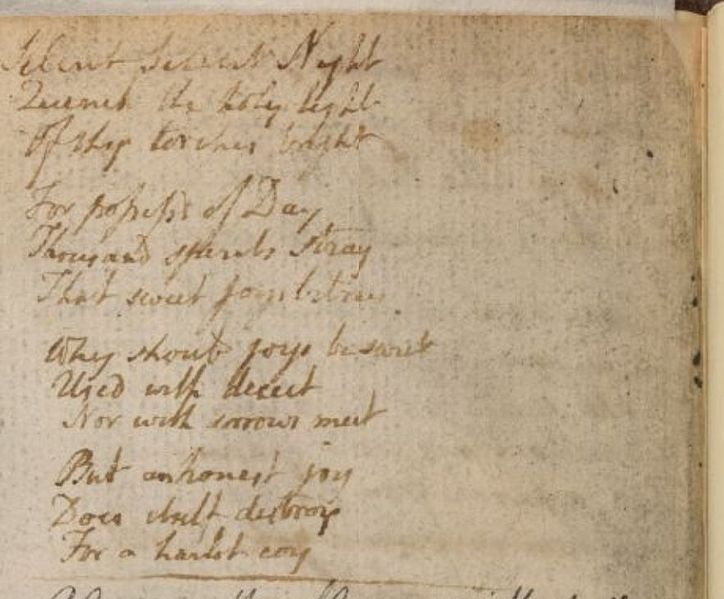 Silent Silent Night
Quench the holy light
Of thy torches bright
For possessd of Day
Thousand spirits stray
That sweet joys betray
Why should joys be sweet
Used with deceit
Nor with sorrows meet
But an honest joy
Does itself destroy
For a harlot coy